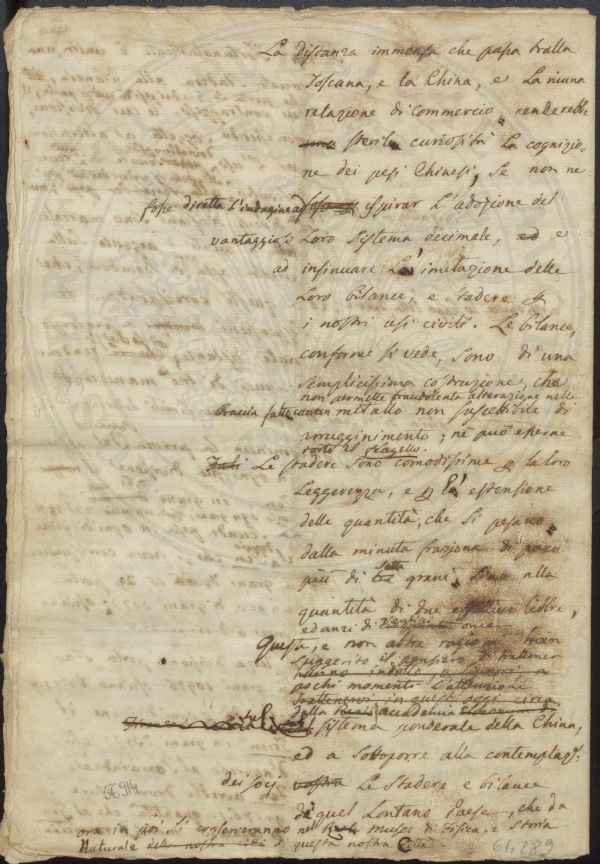 La distanza immensa che passa tralla
Toscana, e la China, e la niuna
relazione di Commercio renderebbe
sterile curiosità la cognizio-
ne dei pesi Chinesi, se non ne
fosse diretta l'indagine ad ispirar l'adozione del
vantaggioso loro sistema decimale, ed e
ad insinuare la imitazione delle
loro bilance, e stadere
i nostri usi civili. Le bilance,
conforme si vede, sono di una
semplicissima costruzione, che
non permette fraudolenta alterazione nelle
braccia fatte con un metallo non suscettibile di
arrugginimento; nè può esserne
torto il flagello.
Tali Le stadere sono comodissime la loro
leggerezza, e la estensione
delle quantità, che si pesano
dalla minuta frazione di poco
più di tre grani, sino alla
quantità di due libbre,
ed anzi di once
Questa, e non altra ragione han
suggerito il pensiero di trattener
hanno indotto a
pochi momenti l'attenzione
trattenervi in quest' oggi circa
della Reale accademia
sul sistema ponderale della China,
ed a sottoporre alla contemplaz:
dei soci vostra le stadere e bilance
di quel lontano Paese, che da
ora in poi si conserveranno nel Reale museo di fisica, e storia
Naturale della nostra città di questa nostra Città.
56914
64289